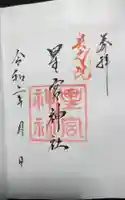 奉拝
星宮神社
星宮神社
令和二年 月 日